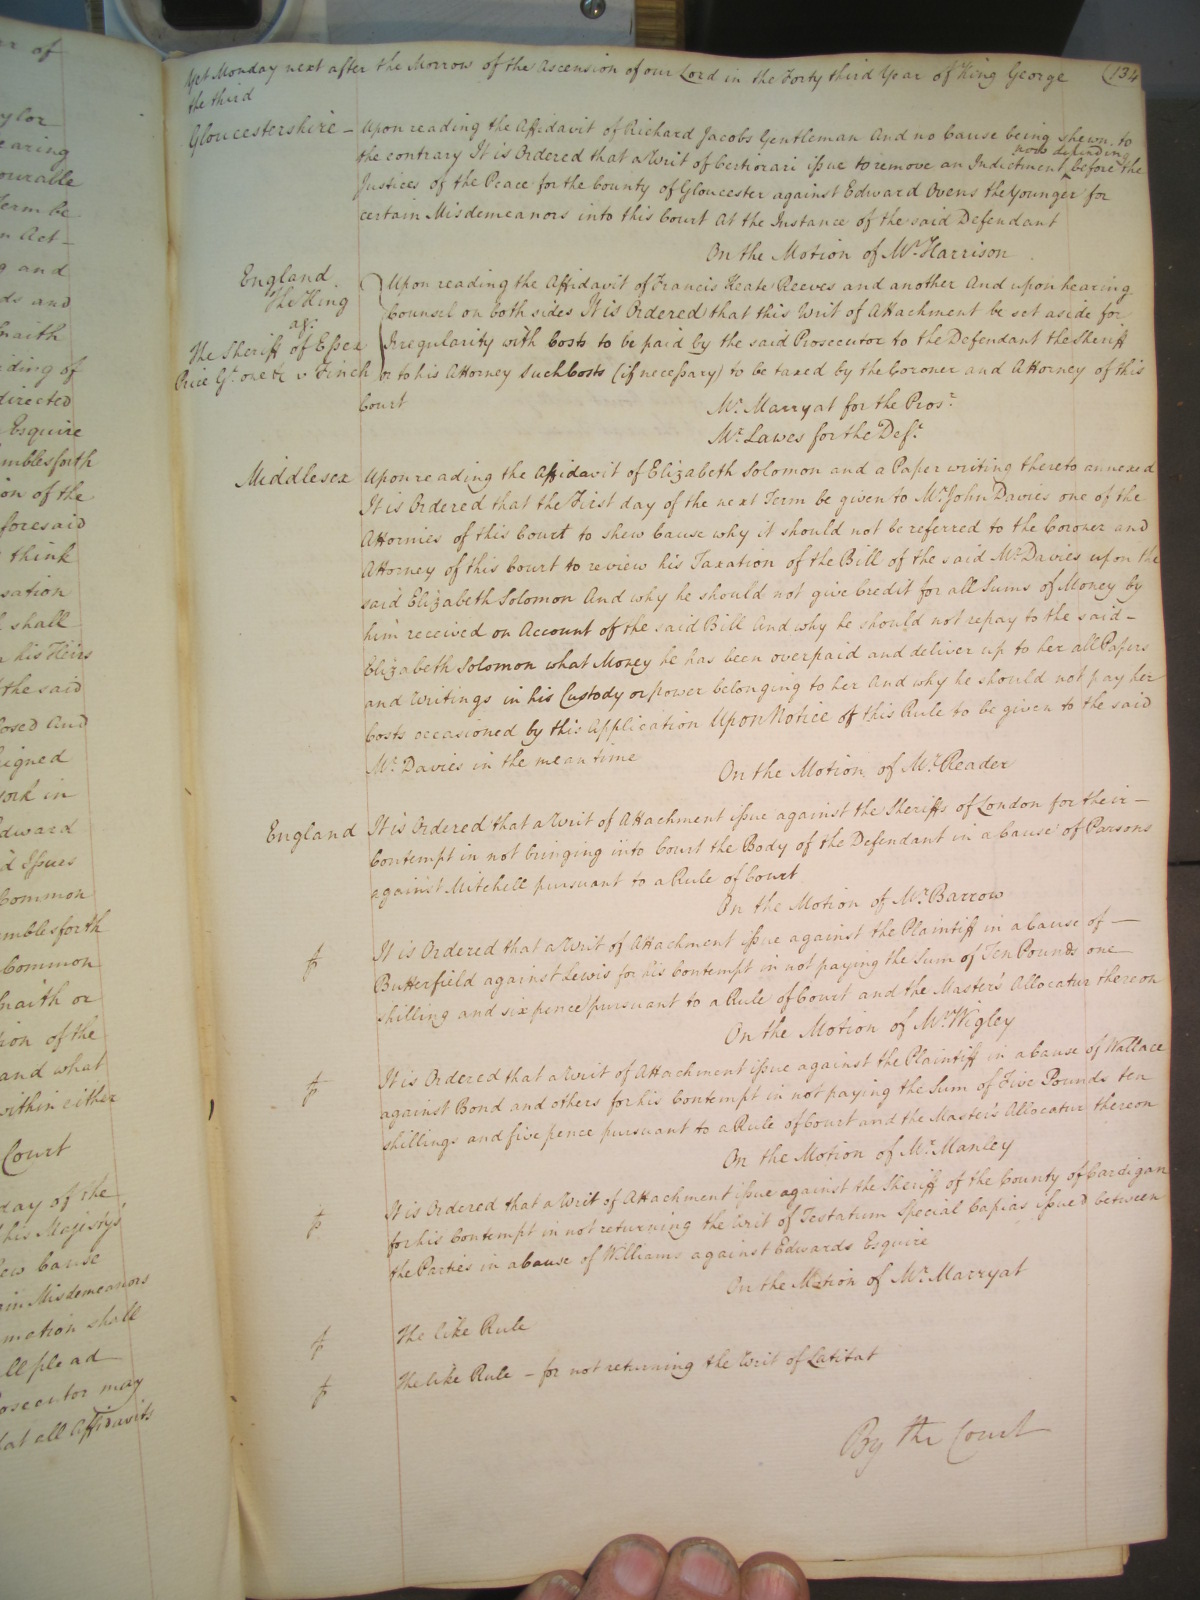 Yet Monday next after the Morrow of the Ascension of our Lord in the Forty third Year of King George (134
the third
Gloucestershire – Upon reading the Affidavit of Richard Jacobs Gentleman And no Cause being shewn to
the contrary It is Ordered that a Writ of Certiorari issue to remove an Indictment ^ now depending before the
Justices of the Peace for the County of Gloucester against Edward Ovens the Younger for
certain Misdemeanors into this Court At the Instance of the said Defendant
On the Motion of Mr. Harrison
England
The King
agt.
The Sheriff of Essex
Price Gt. one &c v Finch
Upon reading the Affidavit of Francis Keate Reeves and another And upon hearing
Counsel on both sides It is Ordered that this Writ of Attachment be set aside for
Irregularity with Costs to be paid by the said Prosecutor to the Defendant the Sheriff
or to his Attorney Such Costs (if necessary) to be taxed by the Coroner and Attorney of this
Court
Mr. Marryat for the Prosr.
Mr. Lawes for the Deft.
Middlesex Upon reading the Affidavit of Elizabeth Solomon and a Paper writing thereto annexed
It is Ordered that the First day of the next Term be given to Mr. John Davies one of the
Attornies of this Court to shew Cause why it should not be referred to the Coroner and
Attorney of this Court to review his Taxation of the Bill of the said Mr. Davies upon the
said Elizabeth Solomon And why he should not give Credit for all Sums of Money by
him received on Account of the said Bill And why he should not repay to the said –
Elizabeth Solomon what Money he has been overpaid and deliver up to her all Papers
and Writings in his Custody or power belonging to her And why he should not pay her
Costs occasioned by this Application Upon Notice of this Rule to be given to the said
Mr. Davies in the mean time
On the Motion of Mr. Reader
England It is Ordered that a Writ of Attachment issue against the Sheriffs of London for their –
Contempt in not bringing into Court the Body of the Defendant in a Cause of Parsons
against Mitchell pursuant to a Rule of Court
On the Motion of Mr. Barrow
It is Ordered that a Writ of Attachment issue against the Plaintiff in a Cause of –
Butterfield against Lewis for his Contempt in not paying the Sum of Ten Pounds one
shilling and sixpence pursuant to a Rule of Court and the Master's Allocatur thereon
On the Motion of Mr. Wigley
It is Ordered that a Writ of Attachment issue against the Plaintiff in a Cause of Wallace
against Bond and others for his Contempt in not paying the Sum of Five Pounds ten
shillings and five pence pursuant to a Rule of Court and the Master's Allocatur thereon
On the Motion of Mr. Manley
It is Ordered that a Writ of Attachment issue against the Sheriff of the County of Cardigan
for his Contempt in not returning the Writ of Testatum Special Capias issued between
the Parties in a Cause of Williams against Edwards Esquire
On the Motion of Mr. Marryat
The like Rule
The like Rule – for not returning the Writ of Latitat
By the Court